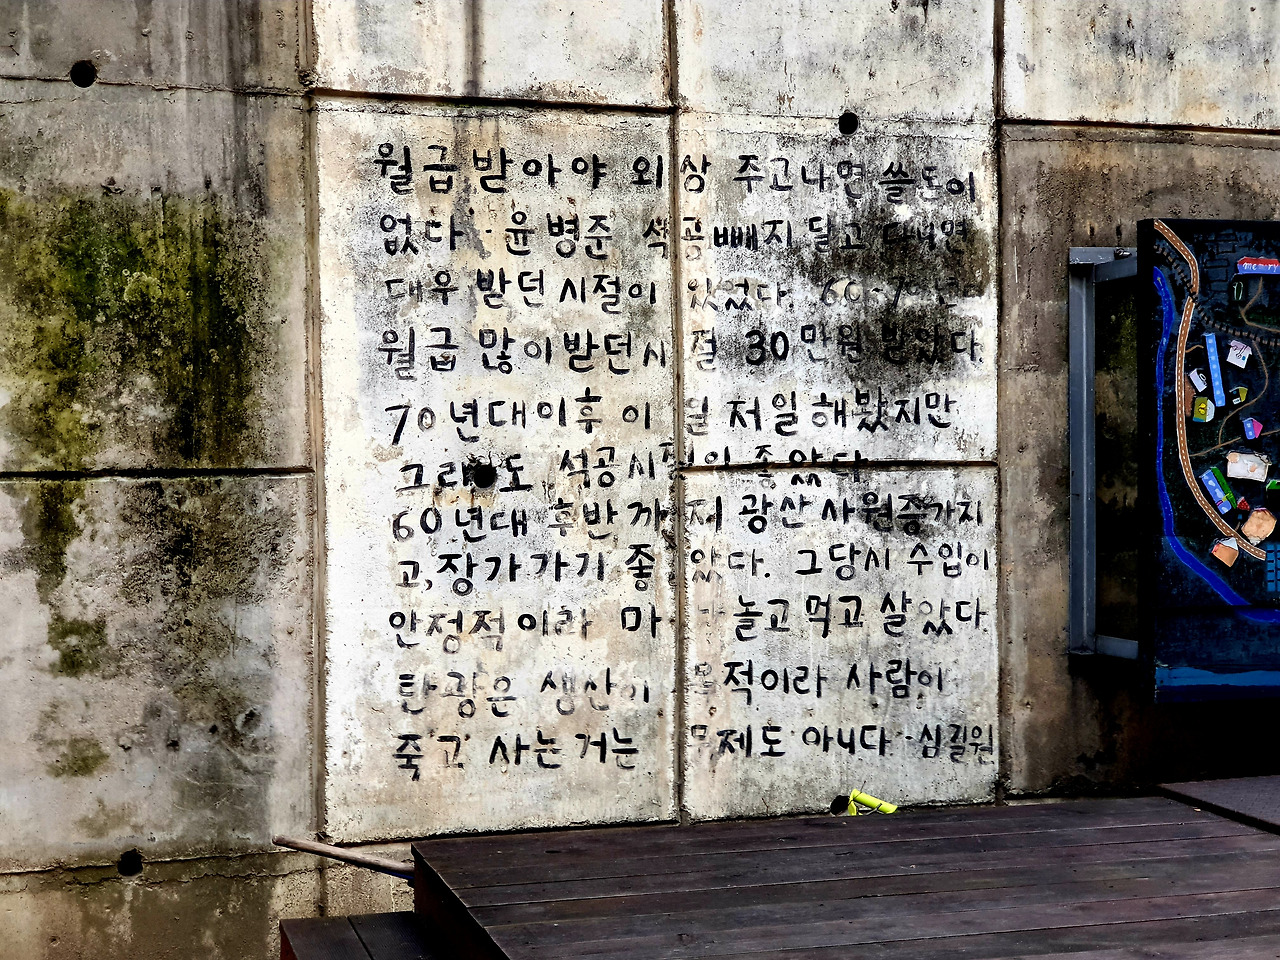 월급 받아야 외상 주고나면 쓸돈이
없다 - 윤병준 석공빼지 달고 다니면
대우 받던 시절이 있었다. 60-7
월급 많이 받던 시절 30만원 받았다.
70년대이후 이 일 저일 해봤지만
그래도 석공시절이 좋았다
60년대 후반까지 광산사원증가지
고, 장가가기 좋았다. 그당시 수입이
안정적이라 놀고 먹고 살았다.
탄광은 생산이 목적이라 사람이
죽고 사는거는 문제도 아니다 - 심길원
memory